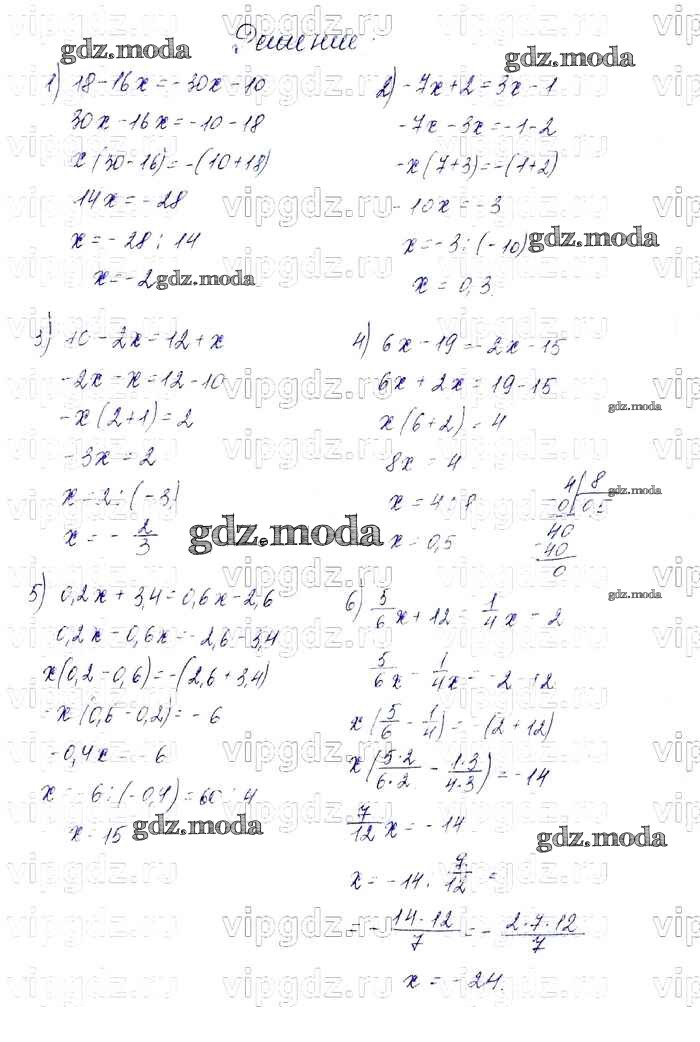 Решение
1) 18-16x=-30x-10
30x-16x=-10-18
x(30-16)=-(10+18)
14x=-28
x=-28:14
x=-2
2) -7x+2=3x-1
-7x-3x=-1-2
-x(7+3)=-(1+2)
-10x=-3
x=-3:(-10)
x=0,3.
3) 10-2x=12+x
-2x-x=12-10
-x(2+1)=2
-3x=2
x=2:(-3)
x=-2/3
4) 6x-19=-2x-15
6x+2x=19-15
x(6+2)=4
8x=4
x=4:8
x=0,5
4 8
0 0,5
40
-40
0
5) 0,2x+3,4=0,6x-2,6
0,2x-0,6x=-2,6-3,4
x(0,2-0,6)=-(2,6+3,4)
-x(0,6-0,2)=-6
-0,4x=-6
x=-6:(-0,4)=60:4
x=15
6) 5/6x+12=1/4x-2
5/6x-1/4x=-2-12
x(5/6-1/4)=-(2+12)
x(5·2/6·2-1·3/4·3)=-14
7/12x=-14
x=-14·7/12=
=-14·12/7=-2·7·12/7
x=-24.
gdz.moda
gdz.moda
gdz.moda
gdz.moda
gdz.moda
gdz.moda
gdz.moda
gdz.moda
gdz.moda
gdz.moda
gdz.moda
vipgdz.ru